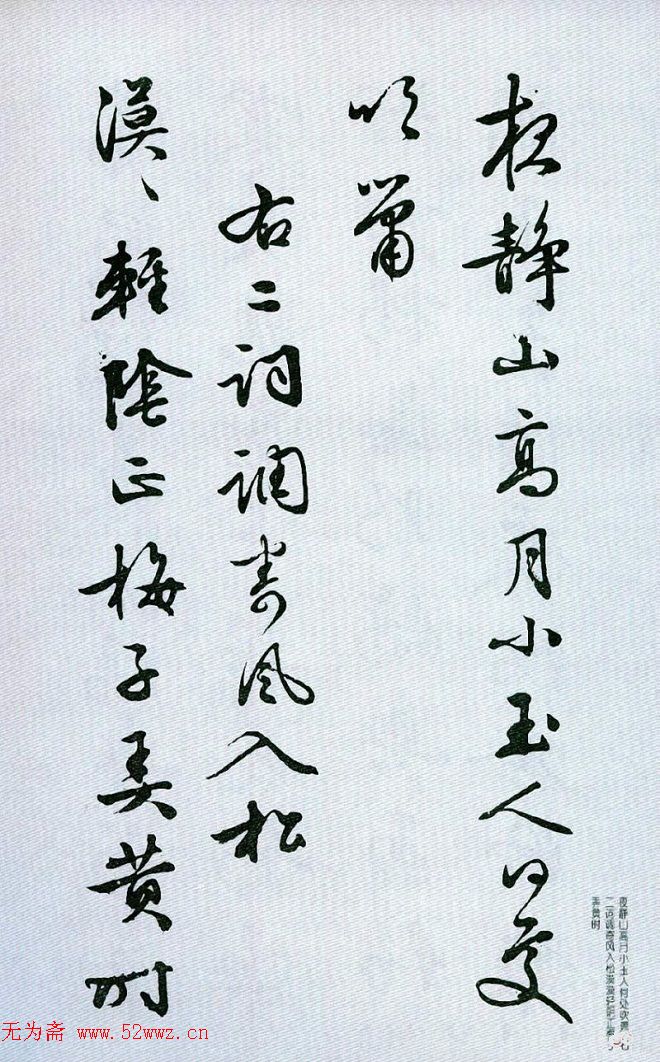 夜静山高月小玉人何處
吹簫
右二詞調寄風入松
漠々輕陰正梅子弄黄時
夜静山高月小玉人何处吹箫右
二词调寄风入松漠漠轻阴正梅子
弄黄时
无为斋 www.52wwz.cn